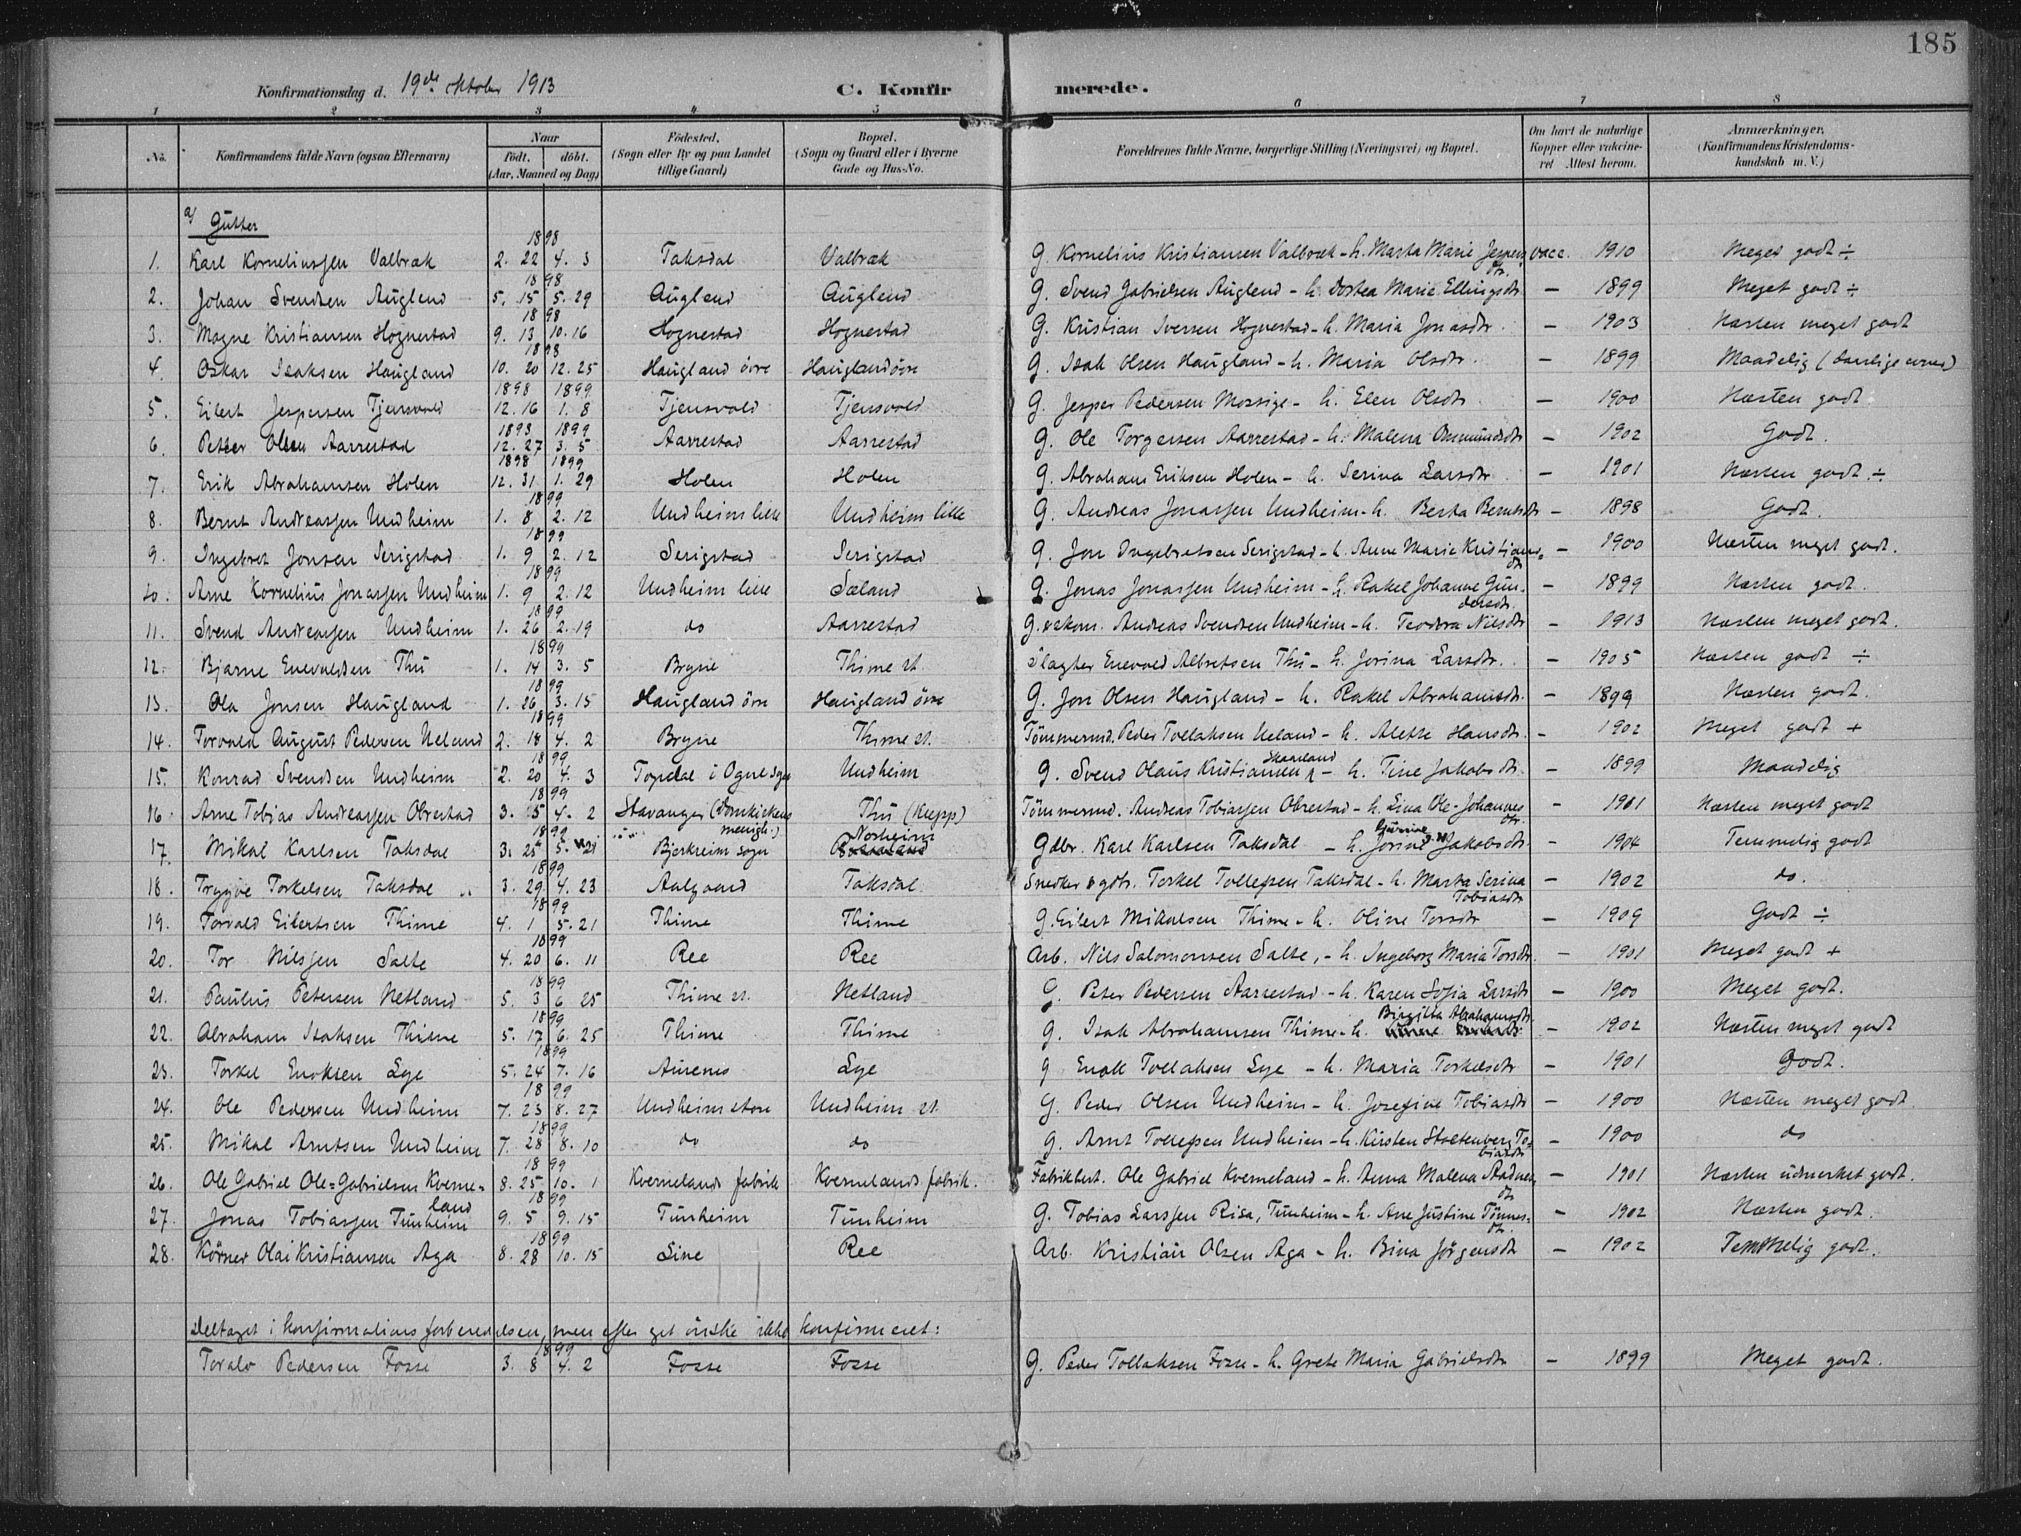 185
Konfirmationsdag d. 19de oktober 1913 C. Konfirmerede.
1 2 3 4 5 6 7 8
No. Konfirmandens fulde Navn (ogsaa Efternavn) Naar født, døbt. (Aar, Maaned og Dag) Fødested, (Sogn eller By og paa Landet tillige Gaard) Bopæl. (Sogn og Gaard eller i Byerne Gade og Hus-No. Forældrenes fulde Navne, borgerlige Stilling (Næringsvei) og Bopæl. Om havt de naturlige Kopper eller vakcineret. Attest herom. Anmærkninger. (Konfirmandens Kristendomskundskab m. V.)
a) Gutter
1. Karl Korneliussen Valbræk 1898 2. 22 4. 3 Taksdal Valbræk G. Kornelius Kristiansen Valbræk - h. Marta Marie Jespersdtr. vacc. 1910 Meget godt ÷
2. Johan Svendsen Auglend 1898 5. 15 5. 29 Auglend Auglend G. Svend Gabrielsen Auglend - h. Dortea Marie Ellingsdtr — 1899 Meget godt ÷
3. Magne Kristiansen Hognestad 1898 9. 13 10. 16 Hognestad Hognestad G. Kristian Iversen Hognestad - h. Maria Jonasdtr. — 1903 Næsten meget godt
4. Oskar Isaksen Haugland 1898 10. 20 12. 25 Haugland övre Haugland övre G. Isak Olsen Haugland - h. Maria Olsdtr. — 1899 Maadelig (daarlige evner)
5. Eilert Jespersen Tjensvold 1898 1899 12. 16 1. 8 Tjensvold Tjensvold G. Jesper Pedersen Mossige - h. Elen Olsdtr — 1900 Næsten godt
6. Petter Olsen Aarrestad 1898 1899 12. 27 3. 5 Aarrestad Aarrestad G. Ole Torgersen Aarrestad - h. Malena Osmundsdtr — 1902 Godt.
7. Erik Abrahamsen Holen 1898 1899 12. 31 1. 29 Holen Holen G. Abraham Eriksen Holen - h. Serina Larsdtr. — 1901 Næsten godt. ÷
8. Bernt Andreassen Undheim 1899 1. 8 2. 12 Undheim lille Undheim lille G. Andreas Jonassen Undheim - h. Berta Berntsdtr — 1898 Godt.
9. Ingebret Jonsen Serigstad 1899 1. 9 2. 12 Serigstad Serigstad G. Jon Ingebretsen Serigstad - h. Anne Marie Kristiansdtr — 1900 Næsten meget godt.
10. Arne Kornelius Jonassen Undheim 1899 1. 9 2. 12 Undheim lille Sæland G. Jonas Jonassen Undheim - h. Rakel Johanne Gundersdtr. — 1899 Næsten godt.
11. Svend Andreassen Undheim 1899 1. 26 2. 19 do Aarrestad G. Andreas Svendsen Undheim - h. Teodora Nilsdtr — 1913 Næsten meget godt.
12. Bjarne Enevaldsen Thu 1899 1. 14 3. 5 Bryne Thime st. Slagter Enevald Albretsen Thu - h. Jorina Larsdtr. — 1905 Næsten godt ÷
13. Ola Jonsen Haugland 1899 1. 26 3. 15 Haugland övre Haugland övre G. Jon Olsen Haugland - h. Rakel Abrahamsdtr. — 1899 Næsten godt.
14. Torvald August Pedersen Ueland 1899 2. 18 4. 2 Bryne Thime st. Tömmermd. Peder Tollaksen Ueland - h. Alette Hansdtr. — 1902 Meget godt +
15. Konrad Svendsen Undheim 1899 2. 20 4. 3 Topdal i Ogne sogn Undheim G. Svend Olaus Kristiansen Skanland - h. Tine Jakobsdtr. — 1899 Maadelig
16. Arne Tobias Andreassen Obrestad 1899 3. 15 4. 2 Stavanger (Domkirkens menigh.) Thu (Klepp) Tömmermd. Andreas Tobiassen Obrestad - h. Lina Ole-Johannesdtr. — 1901 Næsten meget godt
17. Mikal Karlsen Taksdal 1899 3. 25 5. 21 Bjerkreim sogn Norheim Gdbr. Karl Karlsen Taksdal - h. Gurine Jakobsdtr — 1904 Temmelig godt
18. Trygve Torkelsen Taksdal 1899 3. 29 4. 23 Aalgaard Taksdal. Snedker & gdbr. Torkel Tollefsen Taksdal - h. Marta Serina Tobiasdtr — 1902 do.
19. Torvald Eilertsen Thime 1899 4. 1 5. 21 Thime Thime G. Eilert Mikalsen Thime - h. Oline Torsdtr — 1909 Godt ÷
20. Tor Nilssen Salte 1899 4. 20 6. 11 Ree Ree Arb. Nils Salomonsen Salte, - h. Ingeborg Maria Torsdtr. — 1901 Meget godt +
21. Paulus Petersen Netland 1899 5. 3 6 25 Thime st. Netland G. Peter Pedersen Aarrestad - h. Karen Sofia Larsdtr — 1900 Meget godt.
22. Abraham Isaksen Thime 1899 5. 17 6. 25 Thime Thime G. Isak Abrahamsen Thime - h. Birgitta Abrahamsdtr — 1902 Næsten meget godt
23. Torkel Enoksen Lye 1899 5. 24 7. 16 Aurenes Lye G Enok Tollaksen Lye - h. Maria Torkelsdtr — 1901 Godt.
24. Ole Pedersen Undheim 1899 7. 23 8. 27 Undheim store Undheim st. G. Peder Olsen Undheim - h. Josefine Tobiasdtr — 1900 Næsten meget godt.
25. Mikal Arntsen Undheim 1899 7. 28 8. 10 do do G. Arnt Tollefsen Undheim - h. Kirsten Stoltenberg Tobiasdtr — 1900 do
26. Ole Gabriel Ole-Gabrielsen Kverneland 1899 8. 25 10. 1 Kvernelands fabrik Kvernelands fabrik. Fabrikbest. Ole Gabriel Kverneland - h. Anna Malena Aadnesdtr — 1901 Næsten udmerket godt.
27. Jonas Tobiassen Tunheim 1899 9. 5 9. 15 Tunheim Tunheim G. Tobias Larssen Risa, Tunheim - h. Ane Justine Tönnesdtr. — 1902 Næsten godt.
28. Körner Olai Kristiansen Aga 1899 8. 28 10. 15 Line Ree Arb. Kristian Olsen Aga - h. Bina Jörgensdtr — 1902 Temmelig godt.
Deltaget i konfirmationsforberedelsen, men efter eget önske ikke konfirmeret:
Toralv Pedersen Fosse 1899 3. 8 4. 2 Fosse Fosse G. Peder Tollaksen Fosse - h. Grete Maria Gabrielsdtr — 1899 Meget godt.